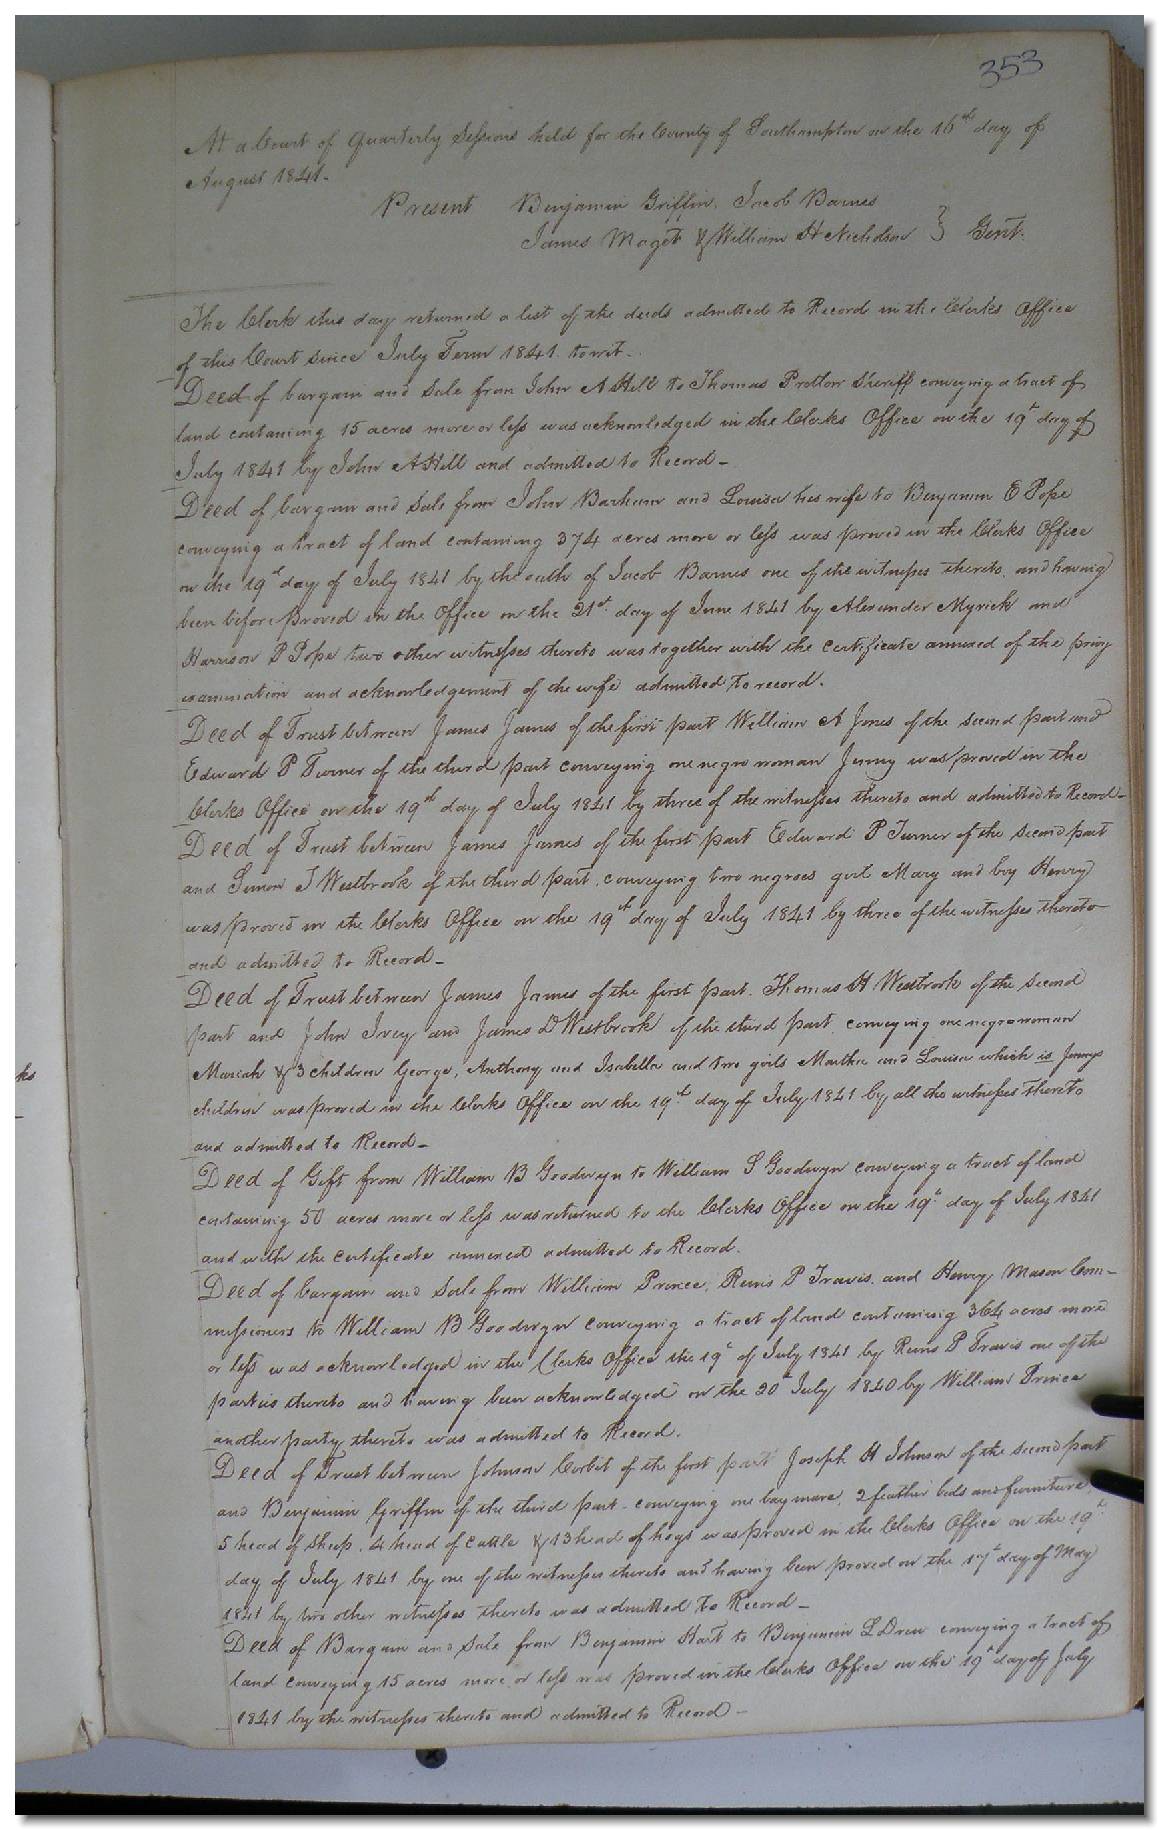 353
At a Court of Quarterly Sessions held for the County of Southampton on the 16th day of
August 1841.
Present Benjamin Griffin, Jacob Barnes
James Maget & William H Nicholson } Gent.
The Clerk this day returned a list of the deeds admitted to Record in the Clerks Office
of this Court since July Term 1841. towit.
Deed of bargain and Sale from John A Hill to Thomas Pretlow Sheriff conveying a tract of
land containing 15 acres more or less was acknowledged in the Clerks Office on the 19th day of
July 1841 by John A Hill and admitted to Record-
Deed of bargain and Sale from John Barham and Louisa his wife to Benjamin E Pope
conveying a tract of land containing 374 acres more or less was proved in the Clerks Office
on the 19th day of July 1841 by the oath of Jacob Barnes one of the witnesses thereto, and having
been before proved in the Office on the 21st day of June 1841 by Alexander Myrick and
Harrison P Pope two other witnesses thereto was together with the certificate annexed of the privy
examination and acknowledgement of the wife admitted to record.
Deed of Trust between James James of the first part William A Jones of the second part and
Edward P Turner of the third part conveying one negro woman Jenny was proved in the
Clerks Office on the 19th day of July 1841 by three of the witnesses thereto and admitted to Record-
Deed of Trust between James James of the first part Edward P Turner of the second part
and Simon T Westbrook of the third part, conveying two negroes girl Mary and boy Henry
was proved in the Clerks Office on the 19th day of July 1841 by three of the witnesses thereto
and admitted to Record-
Deed of Trust between James James of the first part. Thomas H Westbrook of the second
part and John Ivey and James D Westbrook of the third part, conveying one negro woman
Mariah & 3 children George, Anthony and Isabella and two girls Martha and Louisa which is Jennys
children was proved in the Clerks Office on the 19th day of July 1841 by all the witnesses thereto
and admitted to Record-
Deed of Gift from William B Goodwyn to William S Goodwyn conveying a tract of land
containing 50 acres more or less was returned to the Clerks Office on the 19th day of July 1841
and with the certificate annexed admitted to Record.
Deed of bargain and Sale from William Prince, P Travis. and Henry Mason Com-
missioners to William B Goodwyn conveying a tract of land containing 364 acres more
or less was acknowledged in the Clerks Office the 19th of July 1841 by P Travis one of the
parties thereto and having been acknowledged on the 20th July 1840 by William Prince
another party thereto was admitted to Record.
Deed of Trust between Johnson Corbit of the first part Joseph H Johnson of the second part
and Benjamin Griffin of the third part - conveying one bay mare, 2 feather beds and furniture,
5 head of Sheep, 4 head of cattle & 13 head of hogs was proved in the Clerks Office on the 19th
day of July 1841 by one of the witnesses thereto and having been proved on the 17th day of May
1841 by two other witnesses thereto was admitted to Record-
Deed of Bargain and Sale from Benjamin Hart to Benjamin L Drew conveying a tract of
land conveying 15 acres more or less was proved in the Clerks Office on the 19th day of July
1841 by the witnesses thereto and admitted to Record-